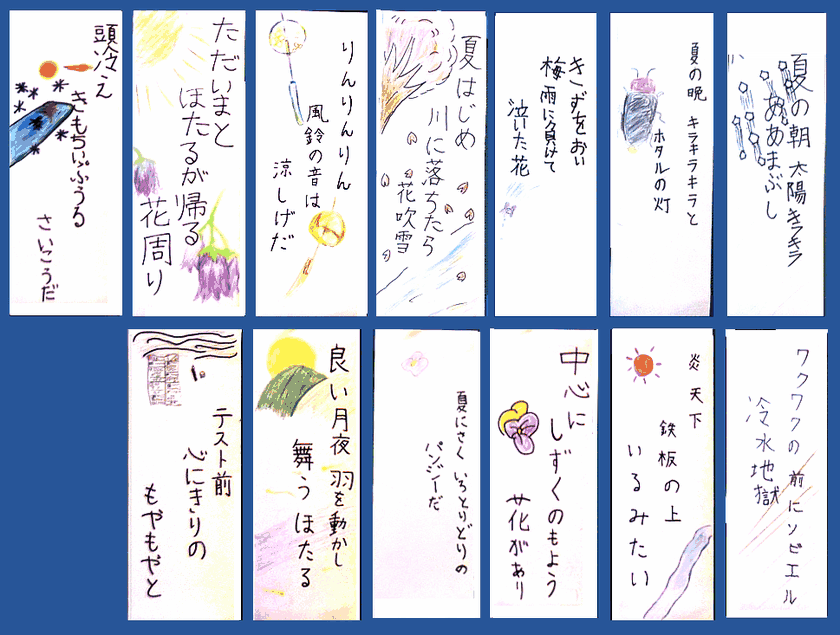 夏の朝 太陽キラキラ
ああまぶし
夏の晩 キラキラキラと
ホタルの灯
きずをおい
梅雨に負けて
泣いた花
夏はじめ
川に落ちたら
花吹雪
りんりんりん
風鈴の音は
涼しげだ
ただいまと
ほたるが帰る
花周り
頭冷え
きもちいいぷうる
さいこうだ
ワクワクの前にソビエル
冷水地獄
炎天下
鉄板の上
いるみたい
中心に
しずくのもよう
花があり
夏にさく いろとりどりの
パンジーだ
良い月夜 羽を動かし
舞うほたる
テスト前
心にきりの
もやもやと